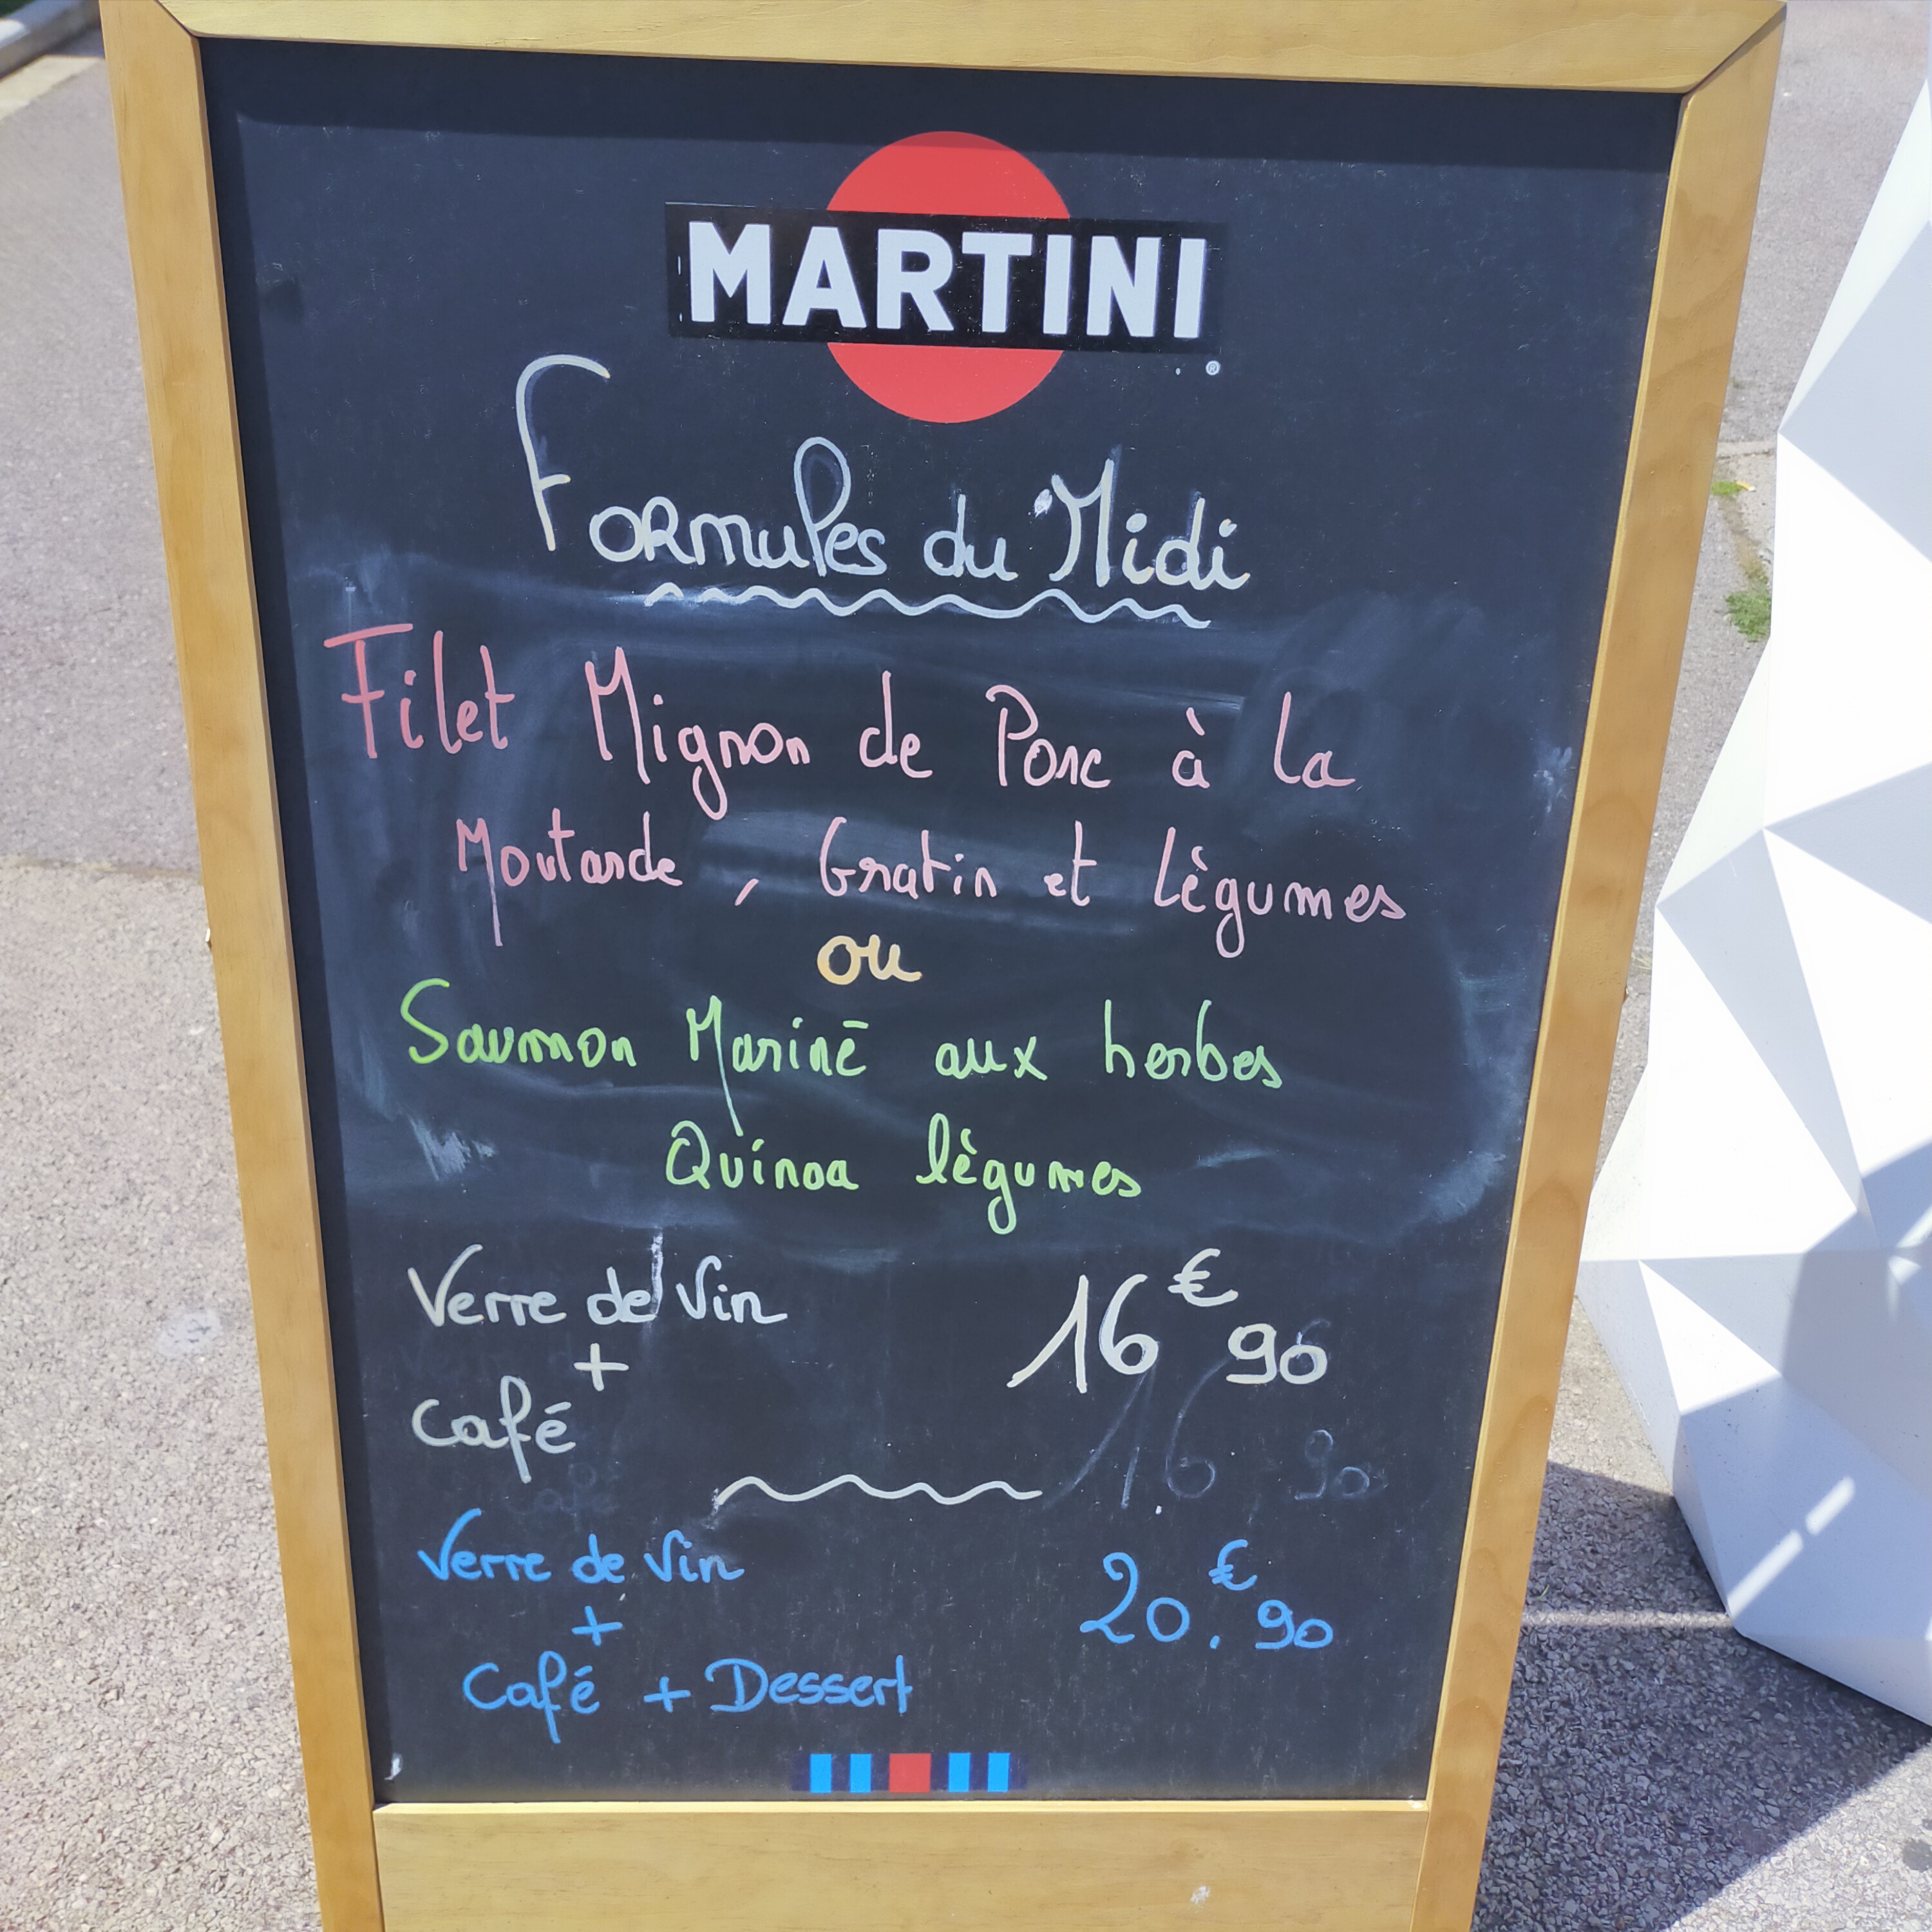 MARTINI
®
Formules du Midi
Filet Mignon de Porc à la
Moutarde, Gratin et légumes
ou
Saumon Mariné aux herbes
Quinoa légumes
Verre de Vin
+
Café
16€90
16 90
Verre de Vin
+
Café + Dessert
20.€90